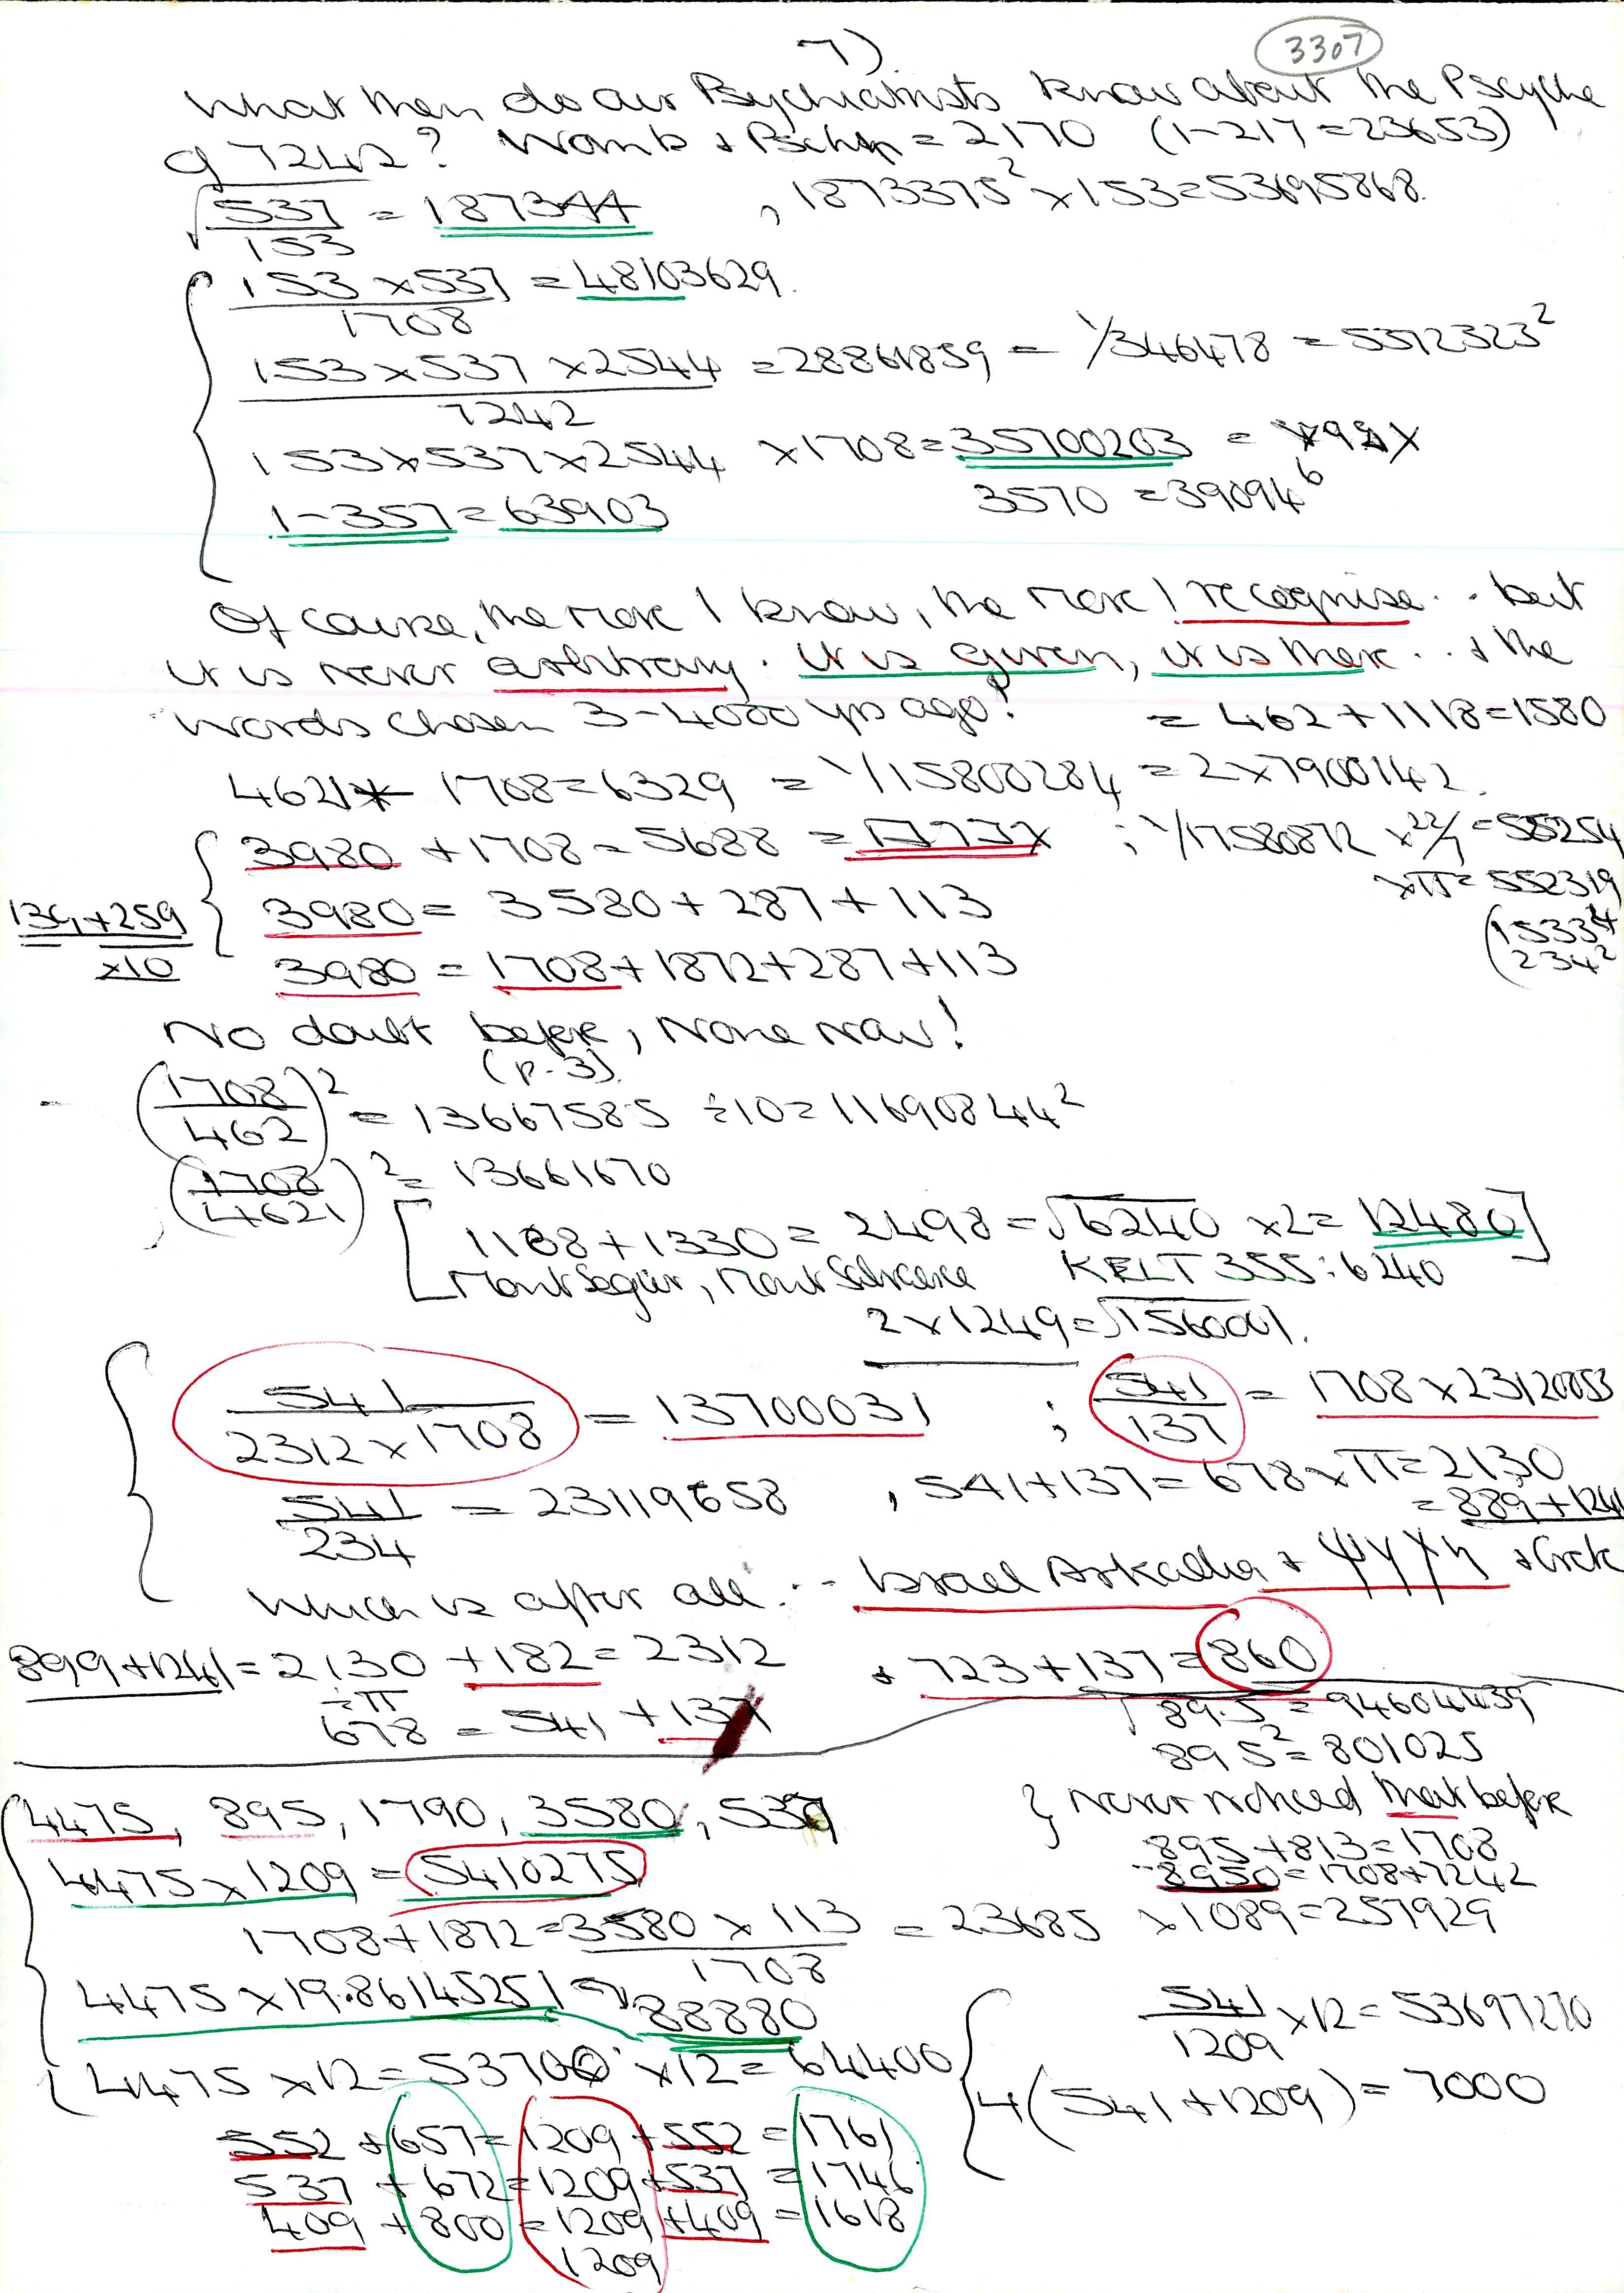 7)
3307
What then do our Psychiatrists know about the Pscyche
of 7242? Womb + = 2170 (1-217=23653)
√537/153 = 187344 , 1873375² ×153=53695868.
153 ×537/1708 = 48103629.
153×537×2544/7242 =28861859 = 1/346478 = 5372323²
153×537×2544 ×1708=35700203 =
1-357=63903 3570 =39094⁶
Of course, the more I know, the more I recognise.. but
it is never arbitrary. It is given, it is there .. + the
words chosen 3-4000 yrs ago! = 462+1118=1580
4621+ 1708=6329 = 1/15800284 = 2×7900142.
3980 +1708=5688 = ; 1/17580872 ×22/7 =55254
×π= 552319
139+259 ×10
3980= 3580+287+113
(1533⁴
3980 = 1708+1872+287+113
234²
No doubt before, None now!
(p.3).
(1708/462)² = 13667585 ÷10=11690844²
(1708/4621)² = 13661670
[1168+1330=2498=√6240 ×2=12480]
Mont Segur, Mont KELT 355:6240
2×1249=√1560001.
541/2312×1708 = 13700031 ; 541/137 = 1708×23120053
541/234 = 23119658 , 541+137=678×π=2130
=889+1241
which is after all... Israel Arkadia + ψυχη + Greek
899+1241=2130 +182=2312 + 723+137=860
÷π
678 = 541 +137
√89.5 =94604439
895²=801025
4475, 895, 1790, 3580, 537
} Never noticed that before
895+813=1708
4475×1209 =5410275
8950=1708+7242
1708+1872=3580 × 113/1708 = 23685 ×1089=257929
4475×19.86145251 = 88880
541/1209 ×12=53697270
4475 ×12=53700 ×12=64400
4(541+1209)=7000
552 +657=1209+552=1761
537 +672=1209+537=1746
409 +800=1209+409=1618
1209